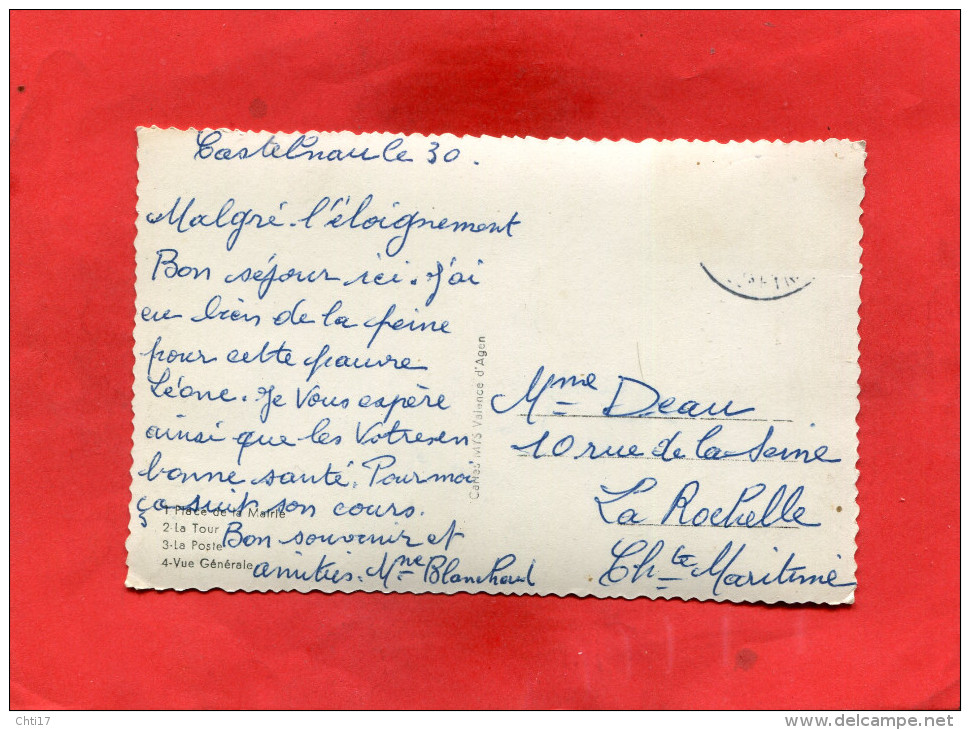 Castelnau le 30.
Malgré l'éloignement
Bon séjour ici. J'ai
eu bien de la peine
pour cette pauvre
Léone. Je Vous espère
ainsi que les Votres en
bonne santé. Pour moi
ça suit son cours.
Bon souvenir et
amitiés. Mme Blanchard
1 Place de la Mairie
2-La Tour
3-La Poste
4-Vue Générale
Cartes M/S Valence d'Agen
Mme Deau
10 rue de la Seine
La Rochelle
Chte Maritime
Chti17
http://www.delcampe.net